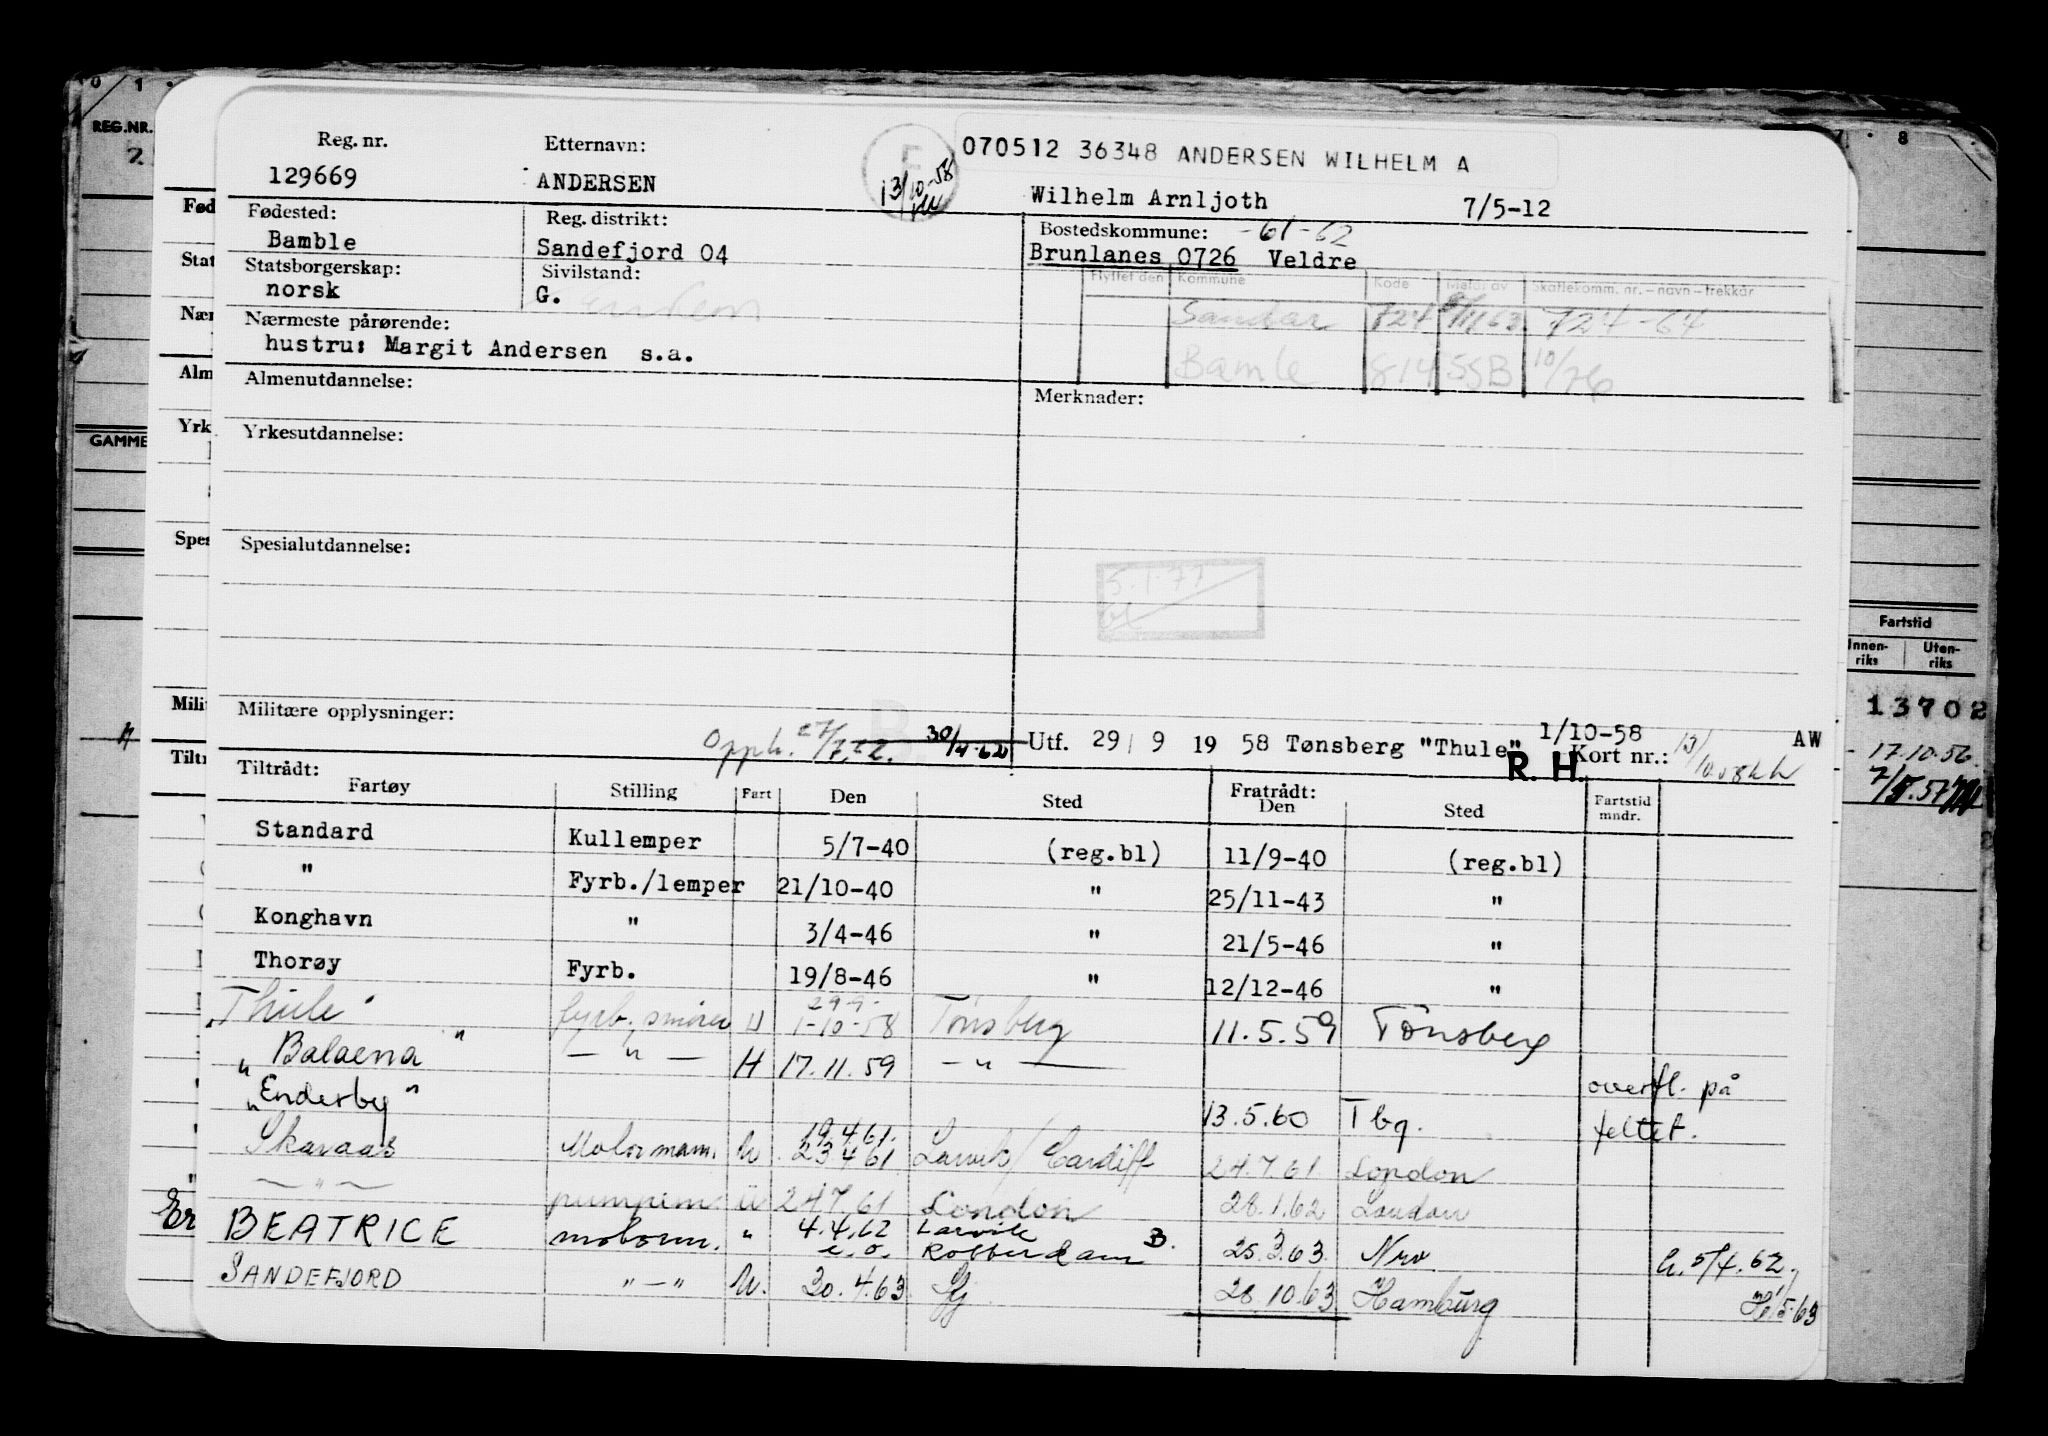 Reg. nr. Etternavn: 070512 36348 ANDERSEN WILHELM A
129669 ANDERSEN 13/10-58 Wilhelm Arnljoth 7/5-12
Fødested: Reg. distrikt: Bostedskommune: -61-62
Bamble Sandefjord 04 Brunlanes 0726 Veldre
Statsborgerskap: Sivilstand: Flyttet den Kommune Kode Meldt av Skattekomm. nr. - navn - trekkår
norsk G. Sandar 724 8/11 63 724-64
Nærmeste pårørende: Bamle 814 SSB 10/76
hustru: Margit Andersen s.a.
Almenutdannelse: Merknader:
Yrkesutdannelse:
Spesialutdannelse: 5.1.77
Militære opplysninger: Opph. 27/7.62. 30/4-62 Utf. 29/9 1958 Tønsberg "Thule" 1/10-58 R. H. Kort nr.: 13/10 58 AW
Tiltrådt: Fratrådt:
Fartøy Stilling Fart Den Sted Den Sted Fartstid mndr.
Standard Kullemper 5/7-40 (reg.bl) 11/9-40 (reg.bl)
" Fyrb./lemper 21/10-40 " 25/11-43 "
Konghavn " 3/4-46 " 21/5-46 "
Thorøy Fyrb. 19/8-46 " 12/12-46 "
29 9-
"Thule" fyrb. smører U 1-10-58 Tønsberg 11.5.59 Tønsberg
"Balaena" — " — H 17.11.59 — " — overfl. på
"Enderby" 13.5.60 Tbg. feltet.
19.4.61.
Skaraas Motormann. U 23 4 61 Larvik/Cardiff 24.7.61 London
— " — pumpem. U 24 7.61 London 28.1.62 London
BEATRICE motorm. " 4.4.62 Larvik 25.3.63 h. 5/4.62.
e.o. Rotterdam B.
SANDEFJORD " — " U. 30.4.63 Sfj 28.10.63 Hamburg
REG.NR.
GAMME
Fød
Stat
Nær
Alm
Yrk
Spes
Milit
Tiltr
Fartstid
Innen-riks Uten-riks
13702
17.10.56.